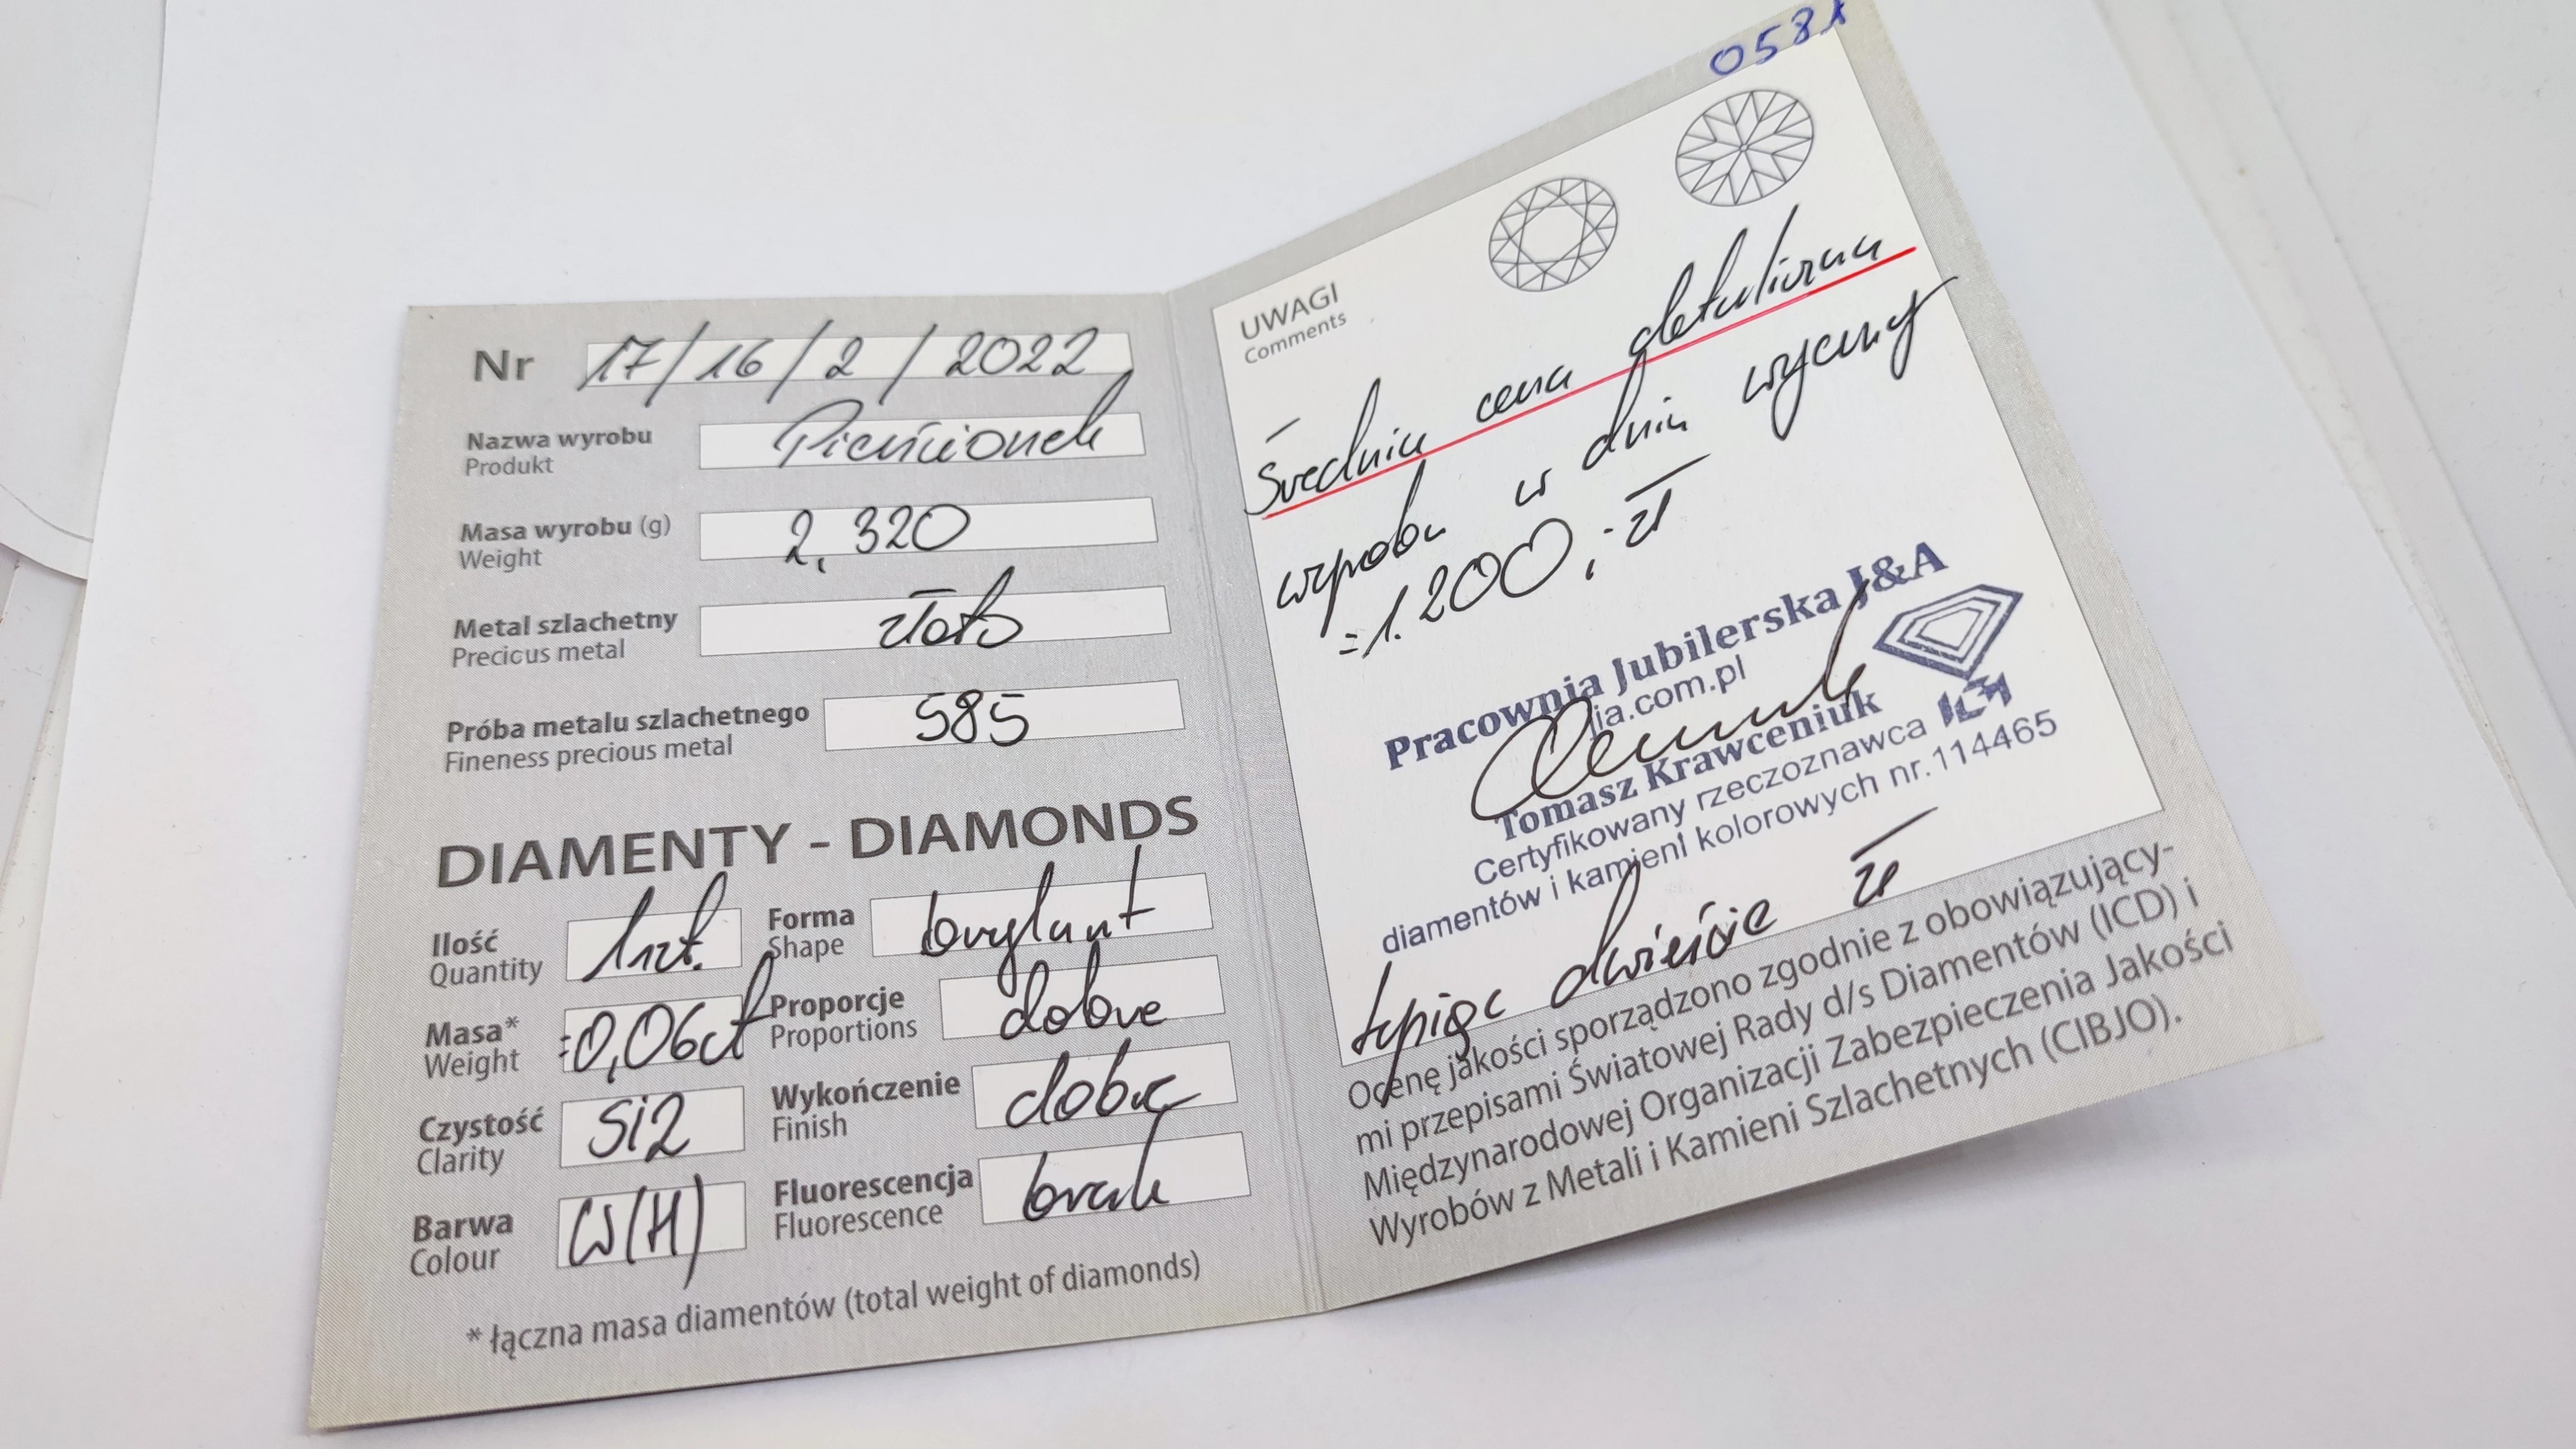 Nr 17/16/2/2022
Nazwa wyrobu Pierścionek
Produkt
Masa wyrobu (g) 2,320
Weight
Metal szlachetny złoto
Precious metal
Próba metalu szlachetnego 585
Fineness precious metal
DIAMENTY - DIAMONDS
Ilość 1szt.
Quantity
Forma brylant
Shape
Masa* =0,06ct
Weight
Proporcje dobre
Proportions
Czystość Si2
Clarity
Wykończenie dobre
Finish
Barwa W(H)
Colour
Fluorescencja brak
Fluorescence
* łączna masa diamentów (total weight of diamonds)
UWAGI
Comments
Średnia cena detaliczna
wyrobu w dniu wyceny
=1.200,-zł
Pracownia Jubilerska J&A
ja.com.pl
Tomasz Krawceniuk
Certyfikowany rzeczoznawca
diamentów i kamieni kolorowych nr.114465
tysiąc dwieście zł
Ocenę jakości sporządzono zgodnie z obowiązujący-
mi przepisami Światowej Rady d/s Diamentów (ICD) i
Międzynarodowej Organizacji Zabezpieczenia Jakości
Wyrobów z Metali i Kamieni Szlachetnych (CIBJO).